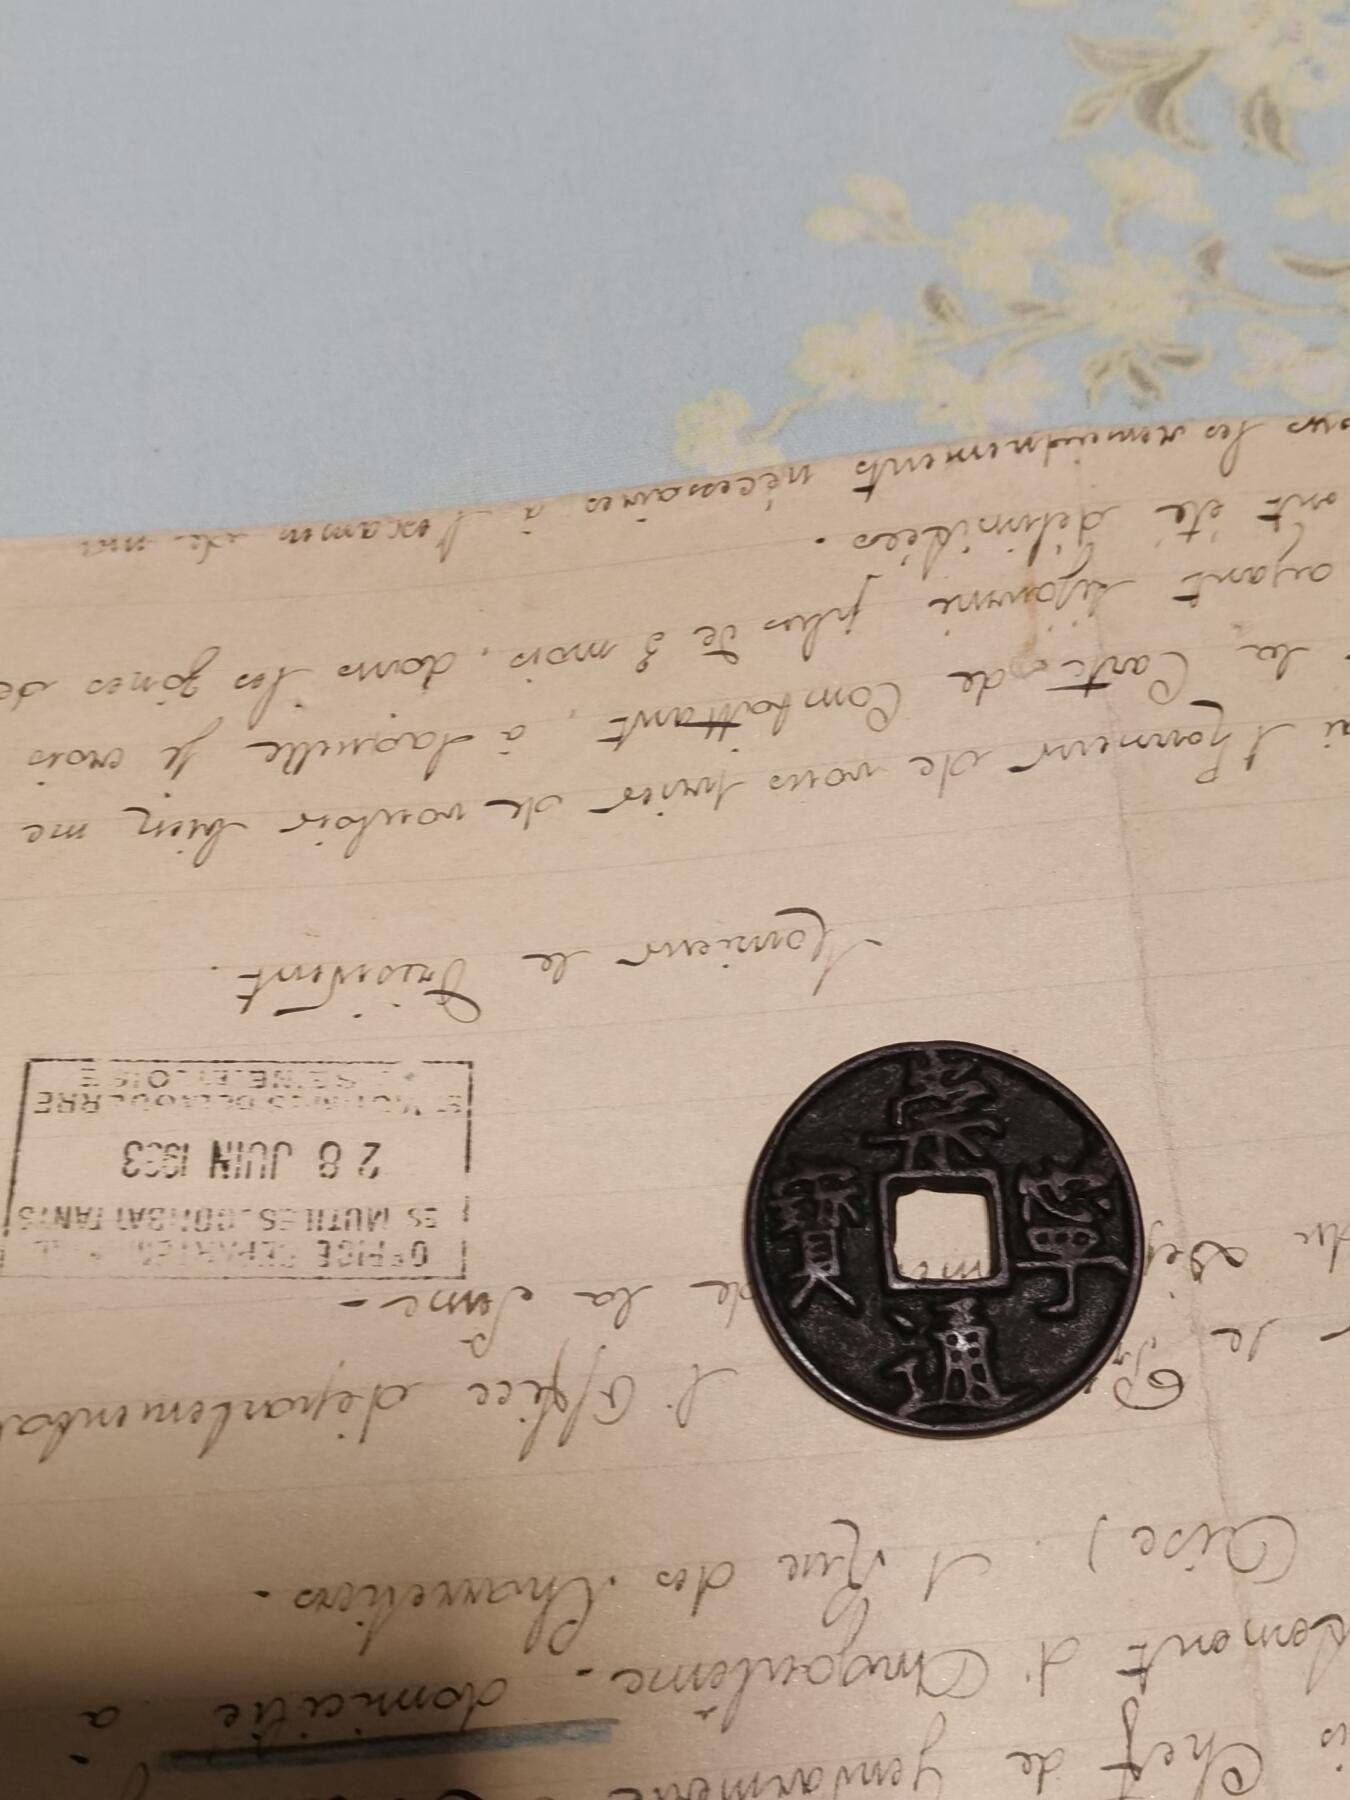 Chef de gendarmerie
d'Angoulême. domicilié à
Oise). 1 Rue des Charretiers.
le l'Office départemental
du de la Seine -
OFFICE DEPARTEMENTAL
ES MUTILES.COMBATTANTS
28 JUIN 1933
ET VICTIMES DE LA GUERRE
SEINE-ET-OISE
Monsieur le Président.
ai l'honneur de vous prier de vouloir bien me
la Carte de Combattant, à laquelle je crois
ayant séjourné plus de 3 mois, dans les zones de
ont été délimitées.
ous les renseignements nécessaires à l'examen de ma
崇寧通寶